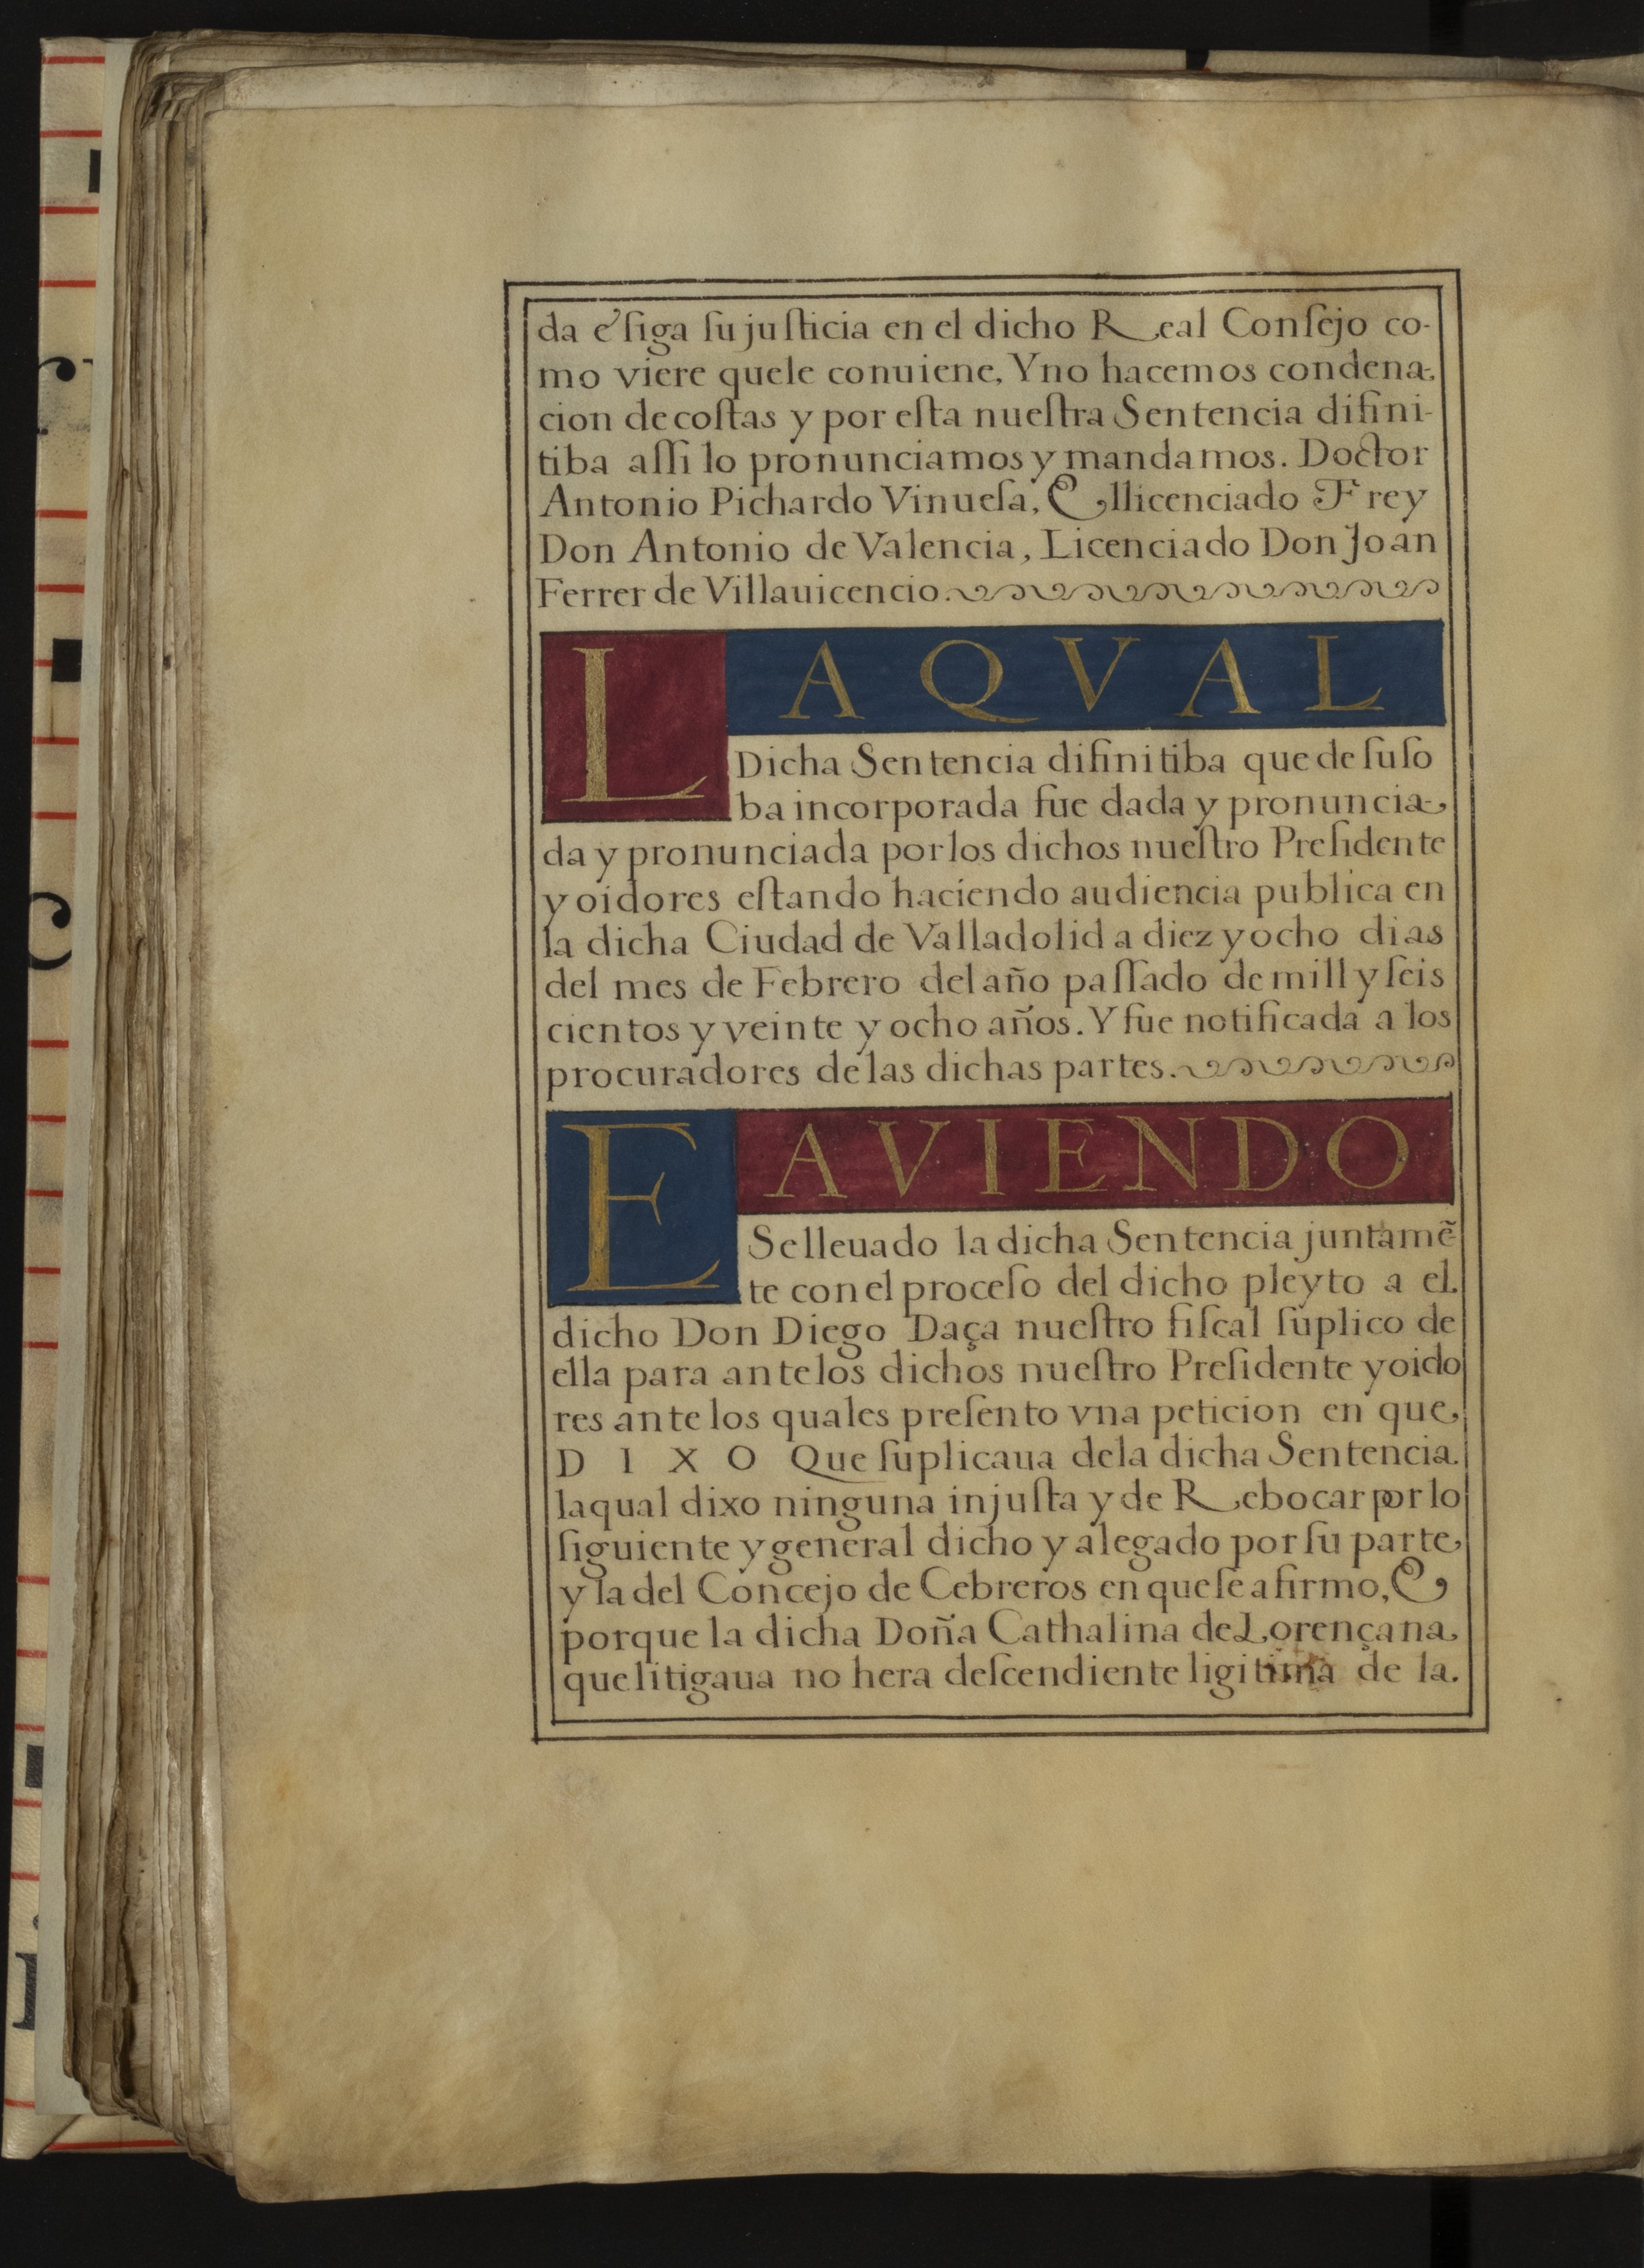 da e ſiga ſu juſticia en el dicho Real Conſejo co-
mo viere quele conuiene, Y no hacemos condena-
cion de coſtas y por eſta nueſtra Sentencia difini-
tiba aſſi lo pronunciamos y mandamos. Doctor
Antonio Pichardo Vinueſa, El licenciado Frey
Don Antonio de Valencia, Licenciado Don Joan
Ferrer de Villauicencio.
LA QVAL
Dicha Sentencia difinitiba que de ſuſo
ba incorporada fue dada y pronuncia-
da y pronunciada por los dichos nueſtro Preſidente
y oidores eſtando haciendo audiencia publica en
la dicha Ciudad de Valladolid a diez y ocho dias
del mes de Febrero del año paſſado de mill y ſeis
cientos y veinte y ocho años. Y fue notificada a los
procuradores de las dichas partes.
E AVIENDO
Se lleuado la dicha Sentencia juntamẽ
te con el proceſo del dicho pleyto a el.
dicho Don Diego Daça nueſtro fiſcal ſuplico de
ella para ante los dichos nueſtro Preſidente y oido
res ante los quales preſento vna peticion en que,
DIXO Que ſuplicaua dela dicha Sentencia.
la qual dixo ninguna injuſta y de Rebocar por lo
ſiguiente y general dicho y alegado por ſu parte
y la del Concejo de Cebreros en que ſe afirmo, E
porque la dicha Doña Cathalina de Lorençana
que litigaua no hera deſcendiente ligitima de la.